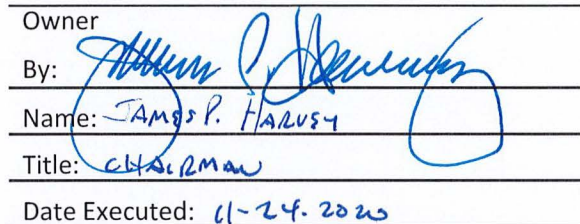 Owner
By:
Name: JAMES P. HARVEY
Title: CHAIRMAN
Date Executed: 11-24.2020